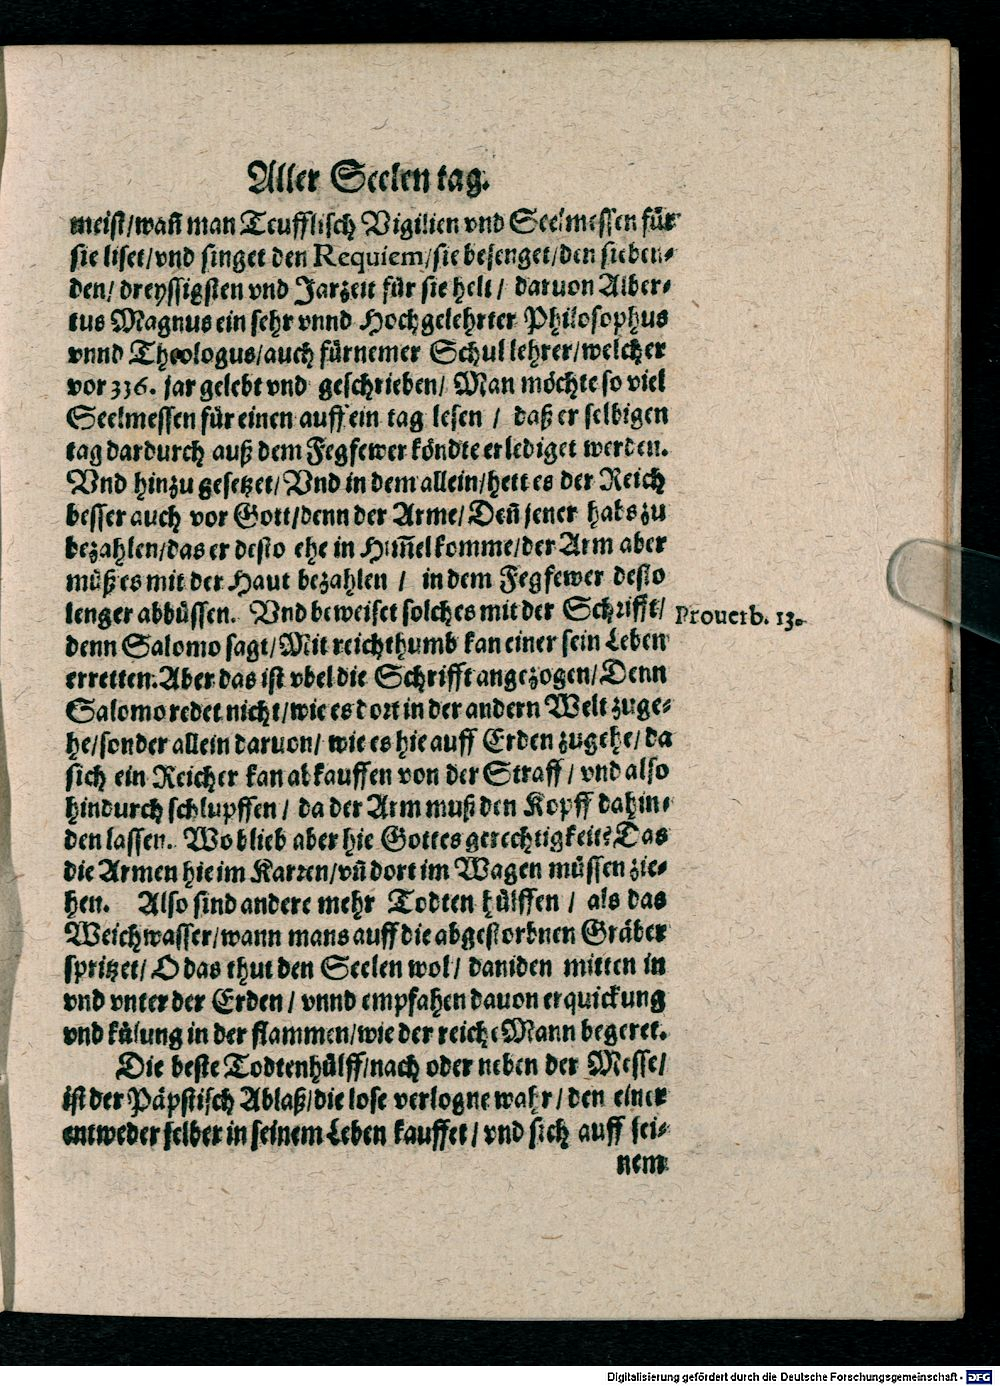 Aller Seelen tag.
meist/wañ man Teufflisch Vigilien vnd Seelmessen für
sie liset/vnd singet den Requiem/sie besenget/den sieben-
den/ dreyssigsten vnd Jarzeit für sie helt/ daruon Alber-
tus Magnus ein sehr vnnd Hochgelehrter Philosophus
vnnd Theologus/auch fürnemer Schullehrer/welcher
vor 336. jar gelebt vnd geschrieben/ Man möchte so viel
Seelmessen für einen auff ein tag lesen / daß er selbigen
tag dardurch auß dem Fegfewer köndte erlediget werden.
Vnd hinzu gesetzet/Vnd in dem allein/hett es der Reich
besser auch vor Gott/denn der Arme/ Deñ jener habs zu
bezahlen/das er desto ehe in Him̃el komme/der Arm aber
müß es mit der Haut bezahlen / in dem Fegfewer desto
lenger abbüssen. Vnd beweiset solches mit der Schrifft/
Prouerb. 13.
denn Salomo sagt/Mit reichthumb kan einer sein Leben
erretten. Aber das ist vbel die Schrifft angezogen/Denn
Salomo redet nicht/wie es dort in der andern Welt zuge-
he/sonder allein daruon/ wie es hie auff Erden zugehe/da
sich ein Reicher kan abkauffen von der Straff / vnd also
hindurch schlupffen / da der Arm muß den Kopff dahin-
den lassen. Wo blieb aber hie Gottes gerechtigkeit? Das
die Armen hie im Karren/vñ dort im Wagen müssen zie-
hen. Also sind andere mehr Todten hülffen / als das
Weichwasser/wann mans auff die abgestorbnen Gräber
spritzet/ O das thut den Seelen wol/ daniden mitten in
vnd vnter der Erden / vnnd empfahen dauon erquickung
vnd külung in der flammen/wie der reiche Mann begeret.
Die beste Todtenhülff/nach oder neben der Messe/
ist der Päpstisch Ablaß/die lose verlogne wahr/den einer
entweder selber in seinem Leben kauffet/ vnd sich auff sei-
nem
Digitalisierung gefördert durch die Deutsche Forschungsgemeinschaft - DFG